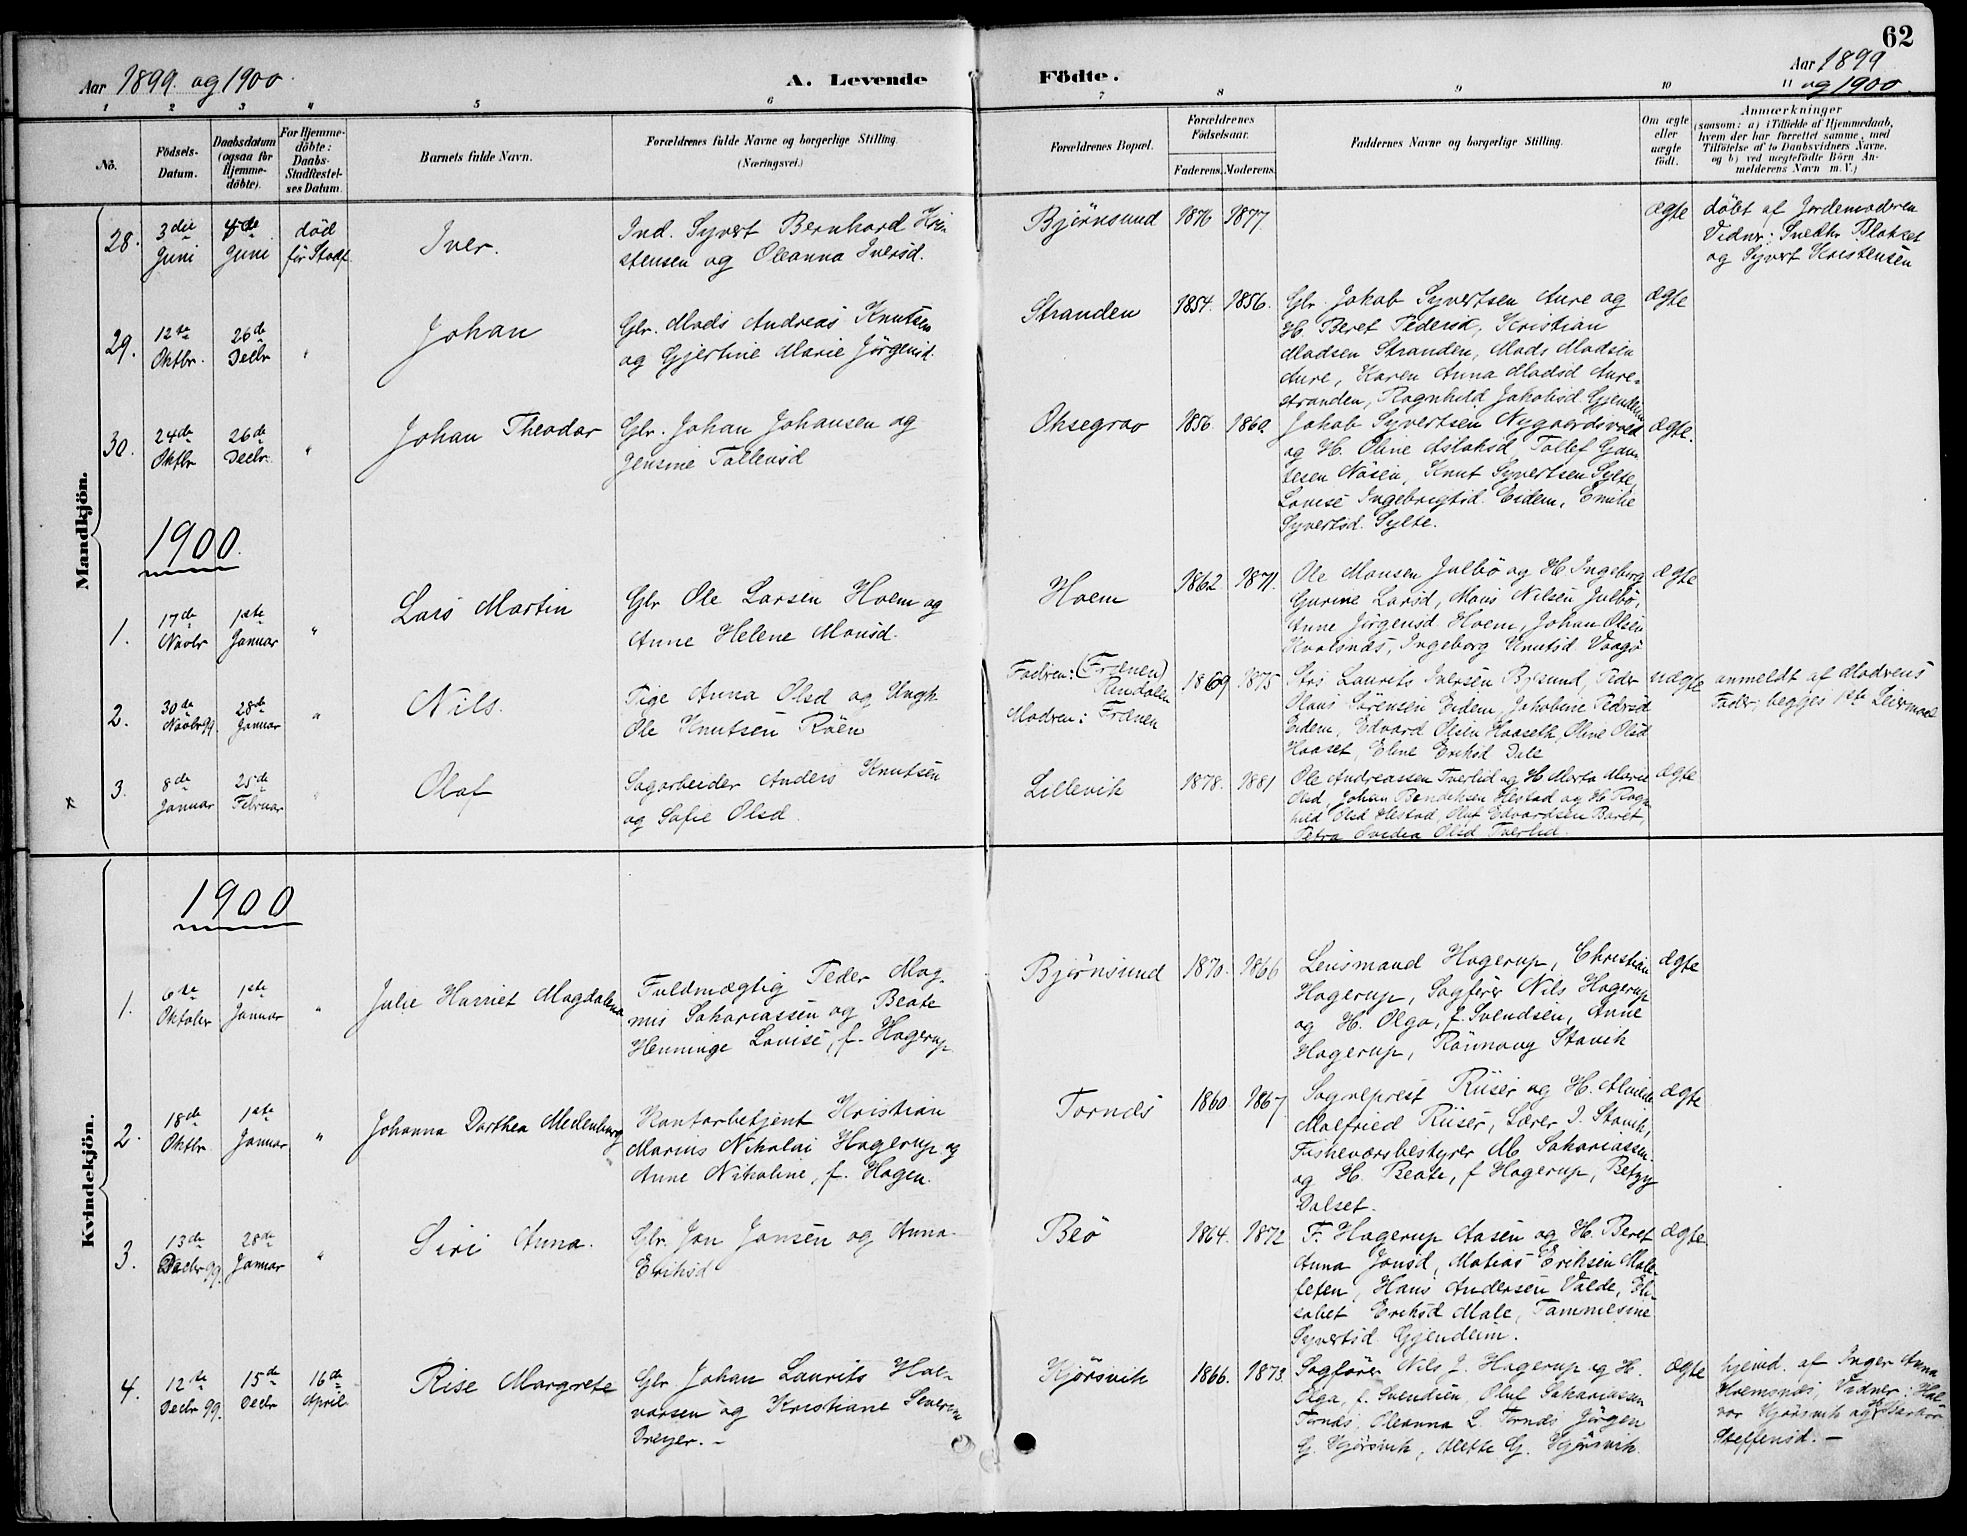 62
Aar 1899. og 1900.
A. Levende Födte.
Aar 1899 og 1900.
1 2 3 4 5 6 7 8 9 10 11
No.
Födsels-Datum.
Daabsdatum (ogsaa for Hjemme-döbte).
For Hjemme-döbte: Daabs-Stadfæstel-ses Datum.
Barnets fulde Navn.
Forældrenes fulde Navne og borgerlige Stilling.
(Næringsvei.)
Forældrenes Bopæl.
Forældrenes Födselsaar.
Faderens. Moderens.
Faddernes Navne og borgerlige Stilling.
Om ægte eller uægte födt.
Anmærkninger
(saasom: a) i Tilfælde af Hjemmedaab, hvem der har forrettet samme, med Tilföielse af to Daabsvidners Navne, og b) ved uægtefödte Börn An-melderens Navn m. V.)
Mandkjön.
28. 3die Juni 4de Juni död før Stadf. Iver. Ind. Syvert Bernhard Kri-
stensen og Oleanna Iversd. Bjørnsund 1876 1877. ægte döbt af Jordemoderen
Vidner: Snedkr Blakset
og Syvert Kristensen
29. 12te Oktbr. 26de Decbr " Johan Gbr. Mads Andreas Knutsen
og Gjertine Marie Jørgensd. Stranden 1854. 1856. Gbr. Jakob Syvertsen Aure og
H. Beret Pedersd, Kristian
Madsen Stranden, Mads Madsen
Aure, Karen Anna Madsd Aure-
stranden, Ragnhild Jakobsd. Gjendem ægte
30. 24de Oktbr 26de Decbr. " Johan Theodor Gbr. Johan Johansen og
Jensine Tollevsd Oksegrav 1856. 1860. Jakob Syvertsen Nygaardsvold
og H. Oline Aslaksd, Tollef Gaut-
esen Näsen, Knut Syvertsen Sylte,
Lovise Ingebrigtsd. Eidem, Emilie
Syvertsd. Sylte. ægte.
1900.
1. 17de Novbr 1ste Januar " Lars Martin Gbr Ole Larsen Hoem og
Anne Helene Monsd. Hoem 1862. 1871. Ole Monsen Julbö og H. Ingeborg
Gurine Larsd, Mons Nilsen Julbö,
Anne Jørgensd Hoem, Johan Olsen
Kvalsnäs, Ingeborg Knutsd. Vaagö ægte
2. 30de Novbr 99. 28de Januar " Nils. Pige Anna Olsd og Ungk.
Ole Knutsen Röen Fadren: (Frænen)
Modren: Frænen 1869 1875 Strs Laurits Iversen Bjlsund, Peder
Hans Sörensen Eidem, Jakobine Pedersd
Eidem, Edvard Olsen Haaseth, Oline Olsd
Haaset, Eline Eriksd Dale uægte anmeldt af Modrens
Fader; begges 1ste Leiermaal
× 3. 8de Januar 25de Februar " Olaf Sagarbeider Anders Knutsen
og Sofie Olsd. Lillevik 1878. 1881 Ole Andreassen Tverlid og H. Marta Marie
Olsd, Johan Bendiksen Hestad og H. Ragn-
hild Olsd Hestad, Oluf Edvardsen Boret,
Petra Olsd Tverlid. ægte
Kvindekjön.
1900
1. 6te Oktober 1ste Januar " Julie Harriet Magdalena Fuldmægtig Peder Mag-
nus Sakariassen og Beate
Henninge Lovise, f. Hagerup Bjørnsund 1870. 1866 Lensmand Hagerup, Christian
Hagerup, Sagfører Nils Hagerup
og H. Olga, f. Svendsen, Anne
Hagerup, Rönnaug Stavik ægte
2. 18de Oktbr. 1ste Januar " Johanna Dorthea Medenburg Kontorbetjent Kristian
Marius Nikolai Hagerup og
Anne Nikoline, f. Hagen. Tornäs 1860. 1867. Sogneprest Riiser og H.
Malfried Riiser, Lærer I. Stavik,
Fiskeværsbestyrer M. Sakariassen
og H. Beate, f Hagerup, Betzy
Dalset. ægte
3. 13de Decbr 99. 28de Januar " Siri Anna. Gbr. Jon Jonsen og Anna
Eriksd Beö 1864. 1872 F. Hagerup Aasen og H. Beret
Anna Jonsd, Matias Eriksen Male-
feten, Hans Andersen Valde, Eli-
sabet Eriksd Male, Tammesine
Syvertsd. Gjendem. ægte
4. 12te Decbr 99. 15de Decbr 16de April Rise Margrete Gbr. Johan Laurits Hal-
vorsen og Kristiane Severine
Dreyer. – Kjörsvik 1866. 1873. Sagfører Nils J. Hagerup og H.
Olga, f. Svendsen, Oluf Sakariassen
Tornäs, Oleanna L. Tornäs, Jörgen
G. Kjörsvik, Mette G. Kjörsvik. ægte hjemd. af Inger Anna
Hoemsnäs; Vidner: Hal-
vor Kjörsvik og H. Barbro
Steffensd. –